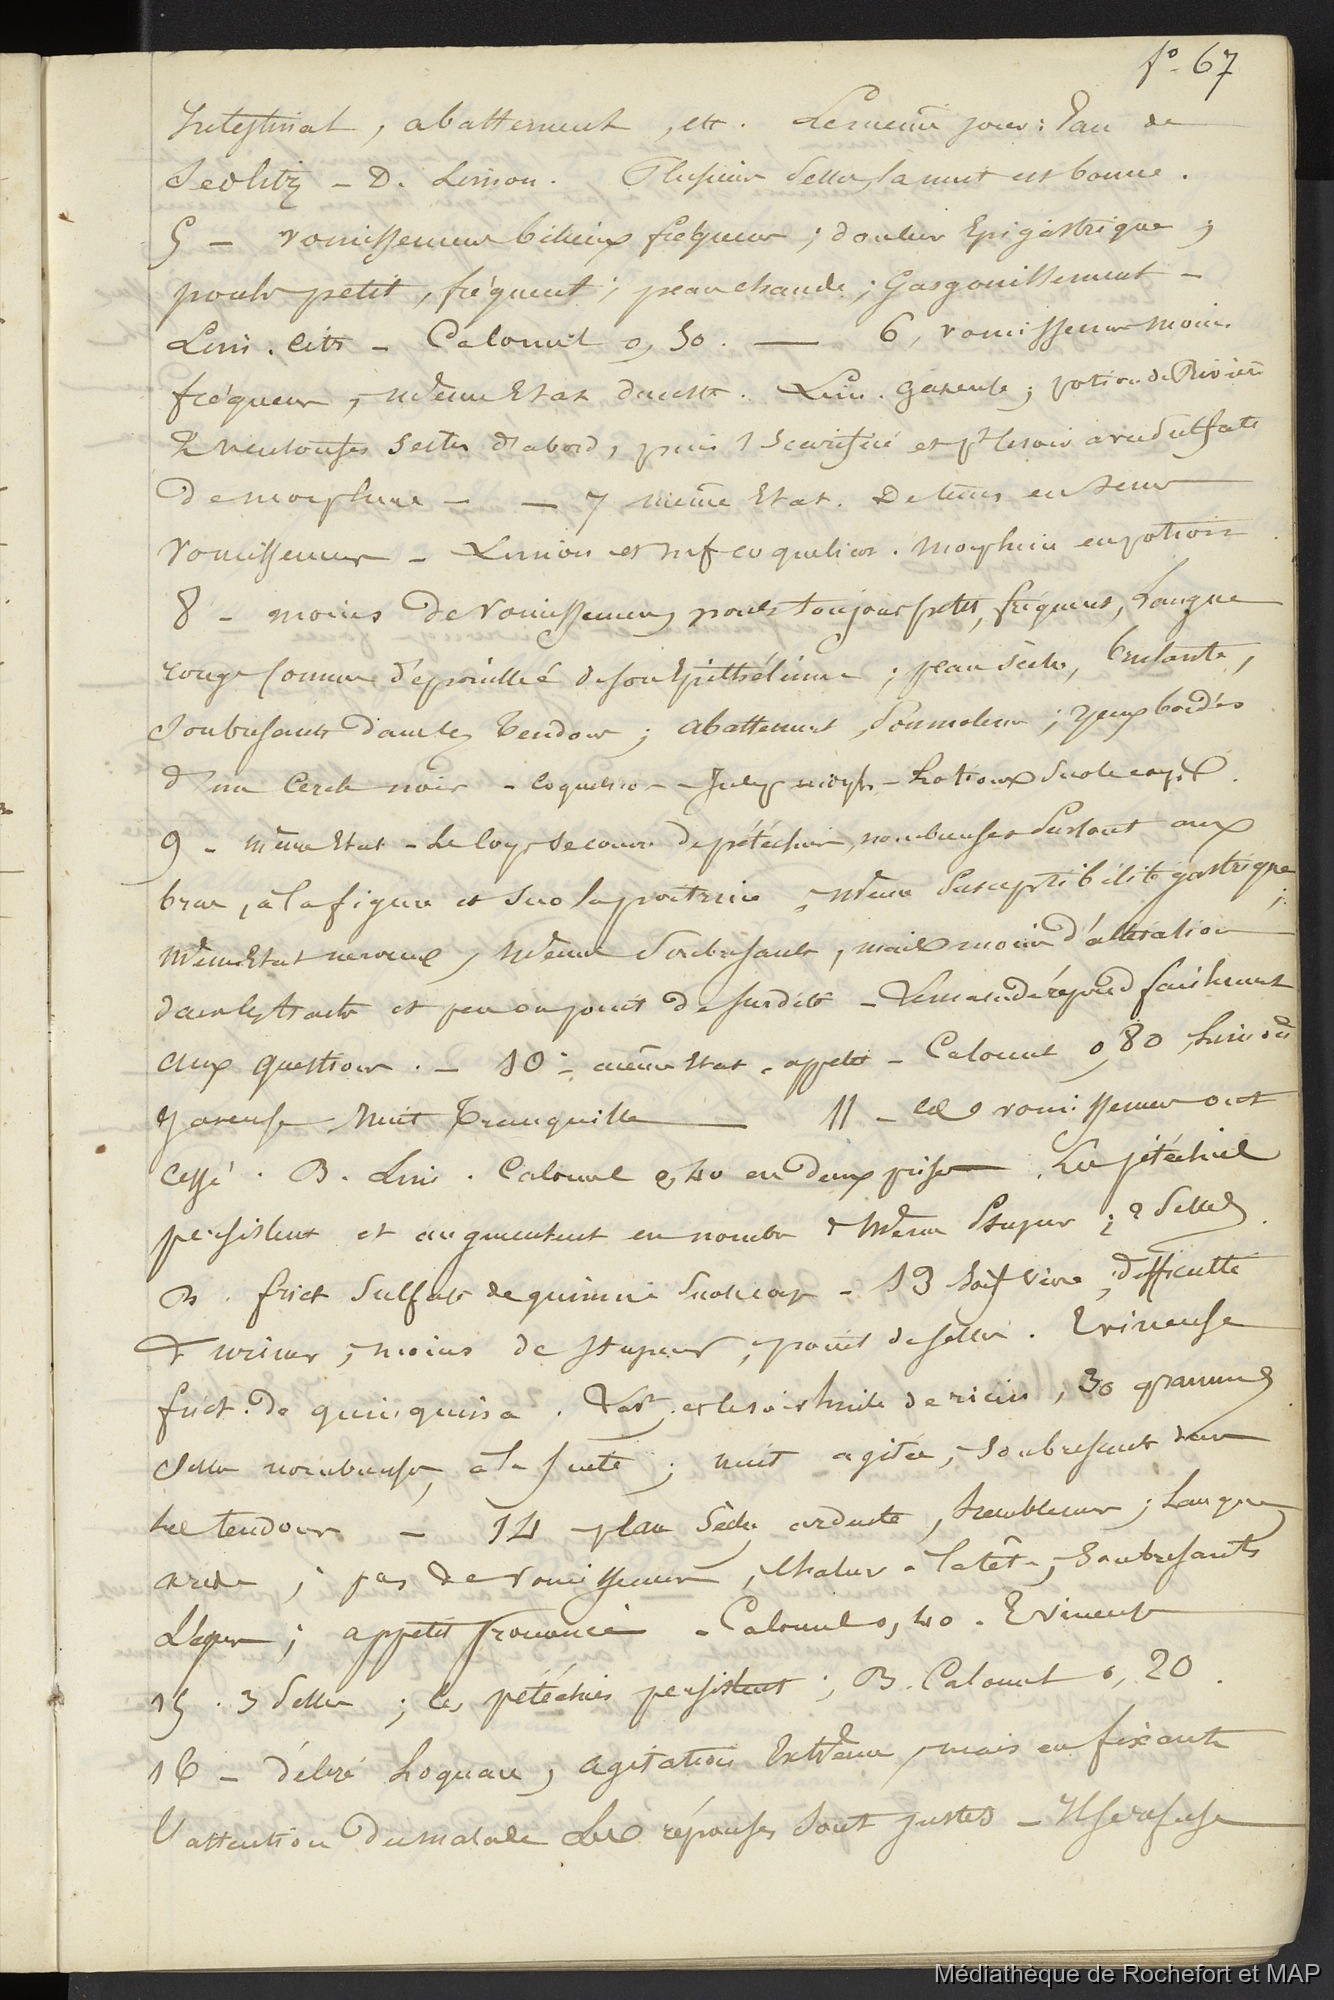 fo. 67
Intestinal, abattement, etc. Le même jour: Eau de
Sedlitz – D. Limon. Plusieurs selles, la nuit est bonne.
5 – vomissements bilieux fréquents; douleur Epigastrique;
pouls petit, fréquent; peau chaude; Gargouillement –
Lim. citr – Calomel 0,50. — 6, vomissements moins
fréquents, même Etat du reste. Lim. gazeuse; potion de Rivière
2 ventouses sèches d'abord, puis 1 scarifiée et pt le soir avec sulfate
de morphine – – 7 même Etat. De temps en temps
vomissements – Limon et inf coquelicot. morphine en potion
8 – moins de vomissements, pouls toujours petit, fréquent, Langue
rouge comme dépouillée de son Epithélium; peau sèche, brulante,
soubresauts dans les tendons; abattement, somnolence; yeux bordés
d'un cercle noir – coquelico – Julep morph – Lotions sur le corps.
9 – même Etat – Le corps se couvre de pétéchies, nombreuses surtout aux
bras, à la figure et sur la poitrine, même susceptibilité gastrique;
même Etat nerveux, même soubresauts, mais moins d'altération
dans les traits et peu ou point de surdité – Le malade répond facilement
aux questions. – 10 – même Etat. appétit – Calomel 0,80 Limon
gazeuse Nuit Tranquille — 11 – Les vomissements ont
cessé. B. Lim. Calomel 0,40 en deux prises – Les pétéchies
persistent et augmentent en nombre, même stupeur; 2 selles.
B. frict sulfate de quinine sur le corps – 13 soif vive; difficulté
d'uriner, moins de stupeur, point de selles. Vineuse
frict. de quinquina. Lavt. et le soir huile de ricin, 30 grammes
selles nombreuses, à la suite; nuit agitée, soubresauts dans
les tendons – 14 – peau sèche, ardente, tremblements; Langue
aride; pas de vomissements, chaleur à la tête, soubresauts
Légers; appétit prononcé – Calomel 0,40. Vineuse
15. 3 selles; les pétéchies persistent; B. Calomel 0,20.
16 – délire loquace, agitation Extrême, mais en fixant
l'attention du malade Les réponses sont justes – Il se refuse
Médiathèque de Rochefort et MAP